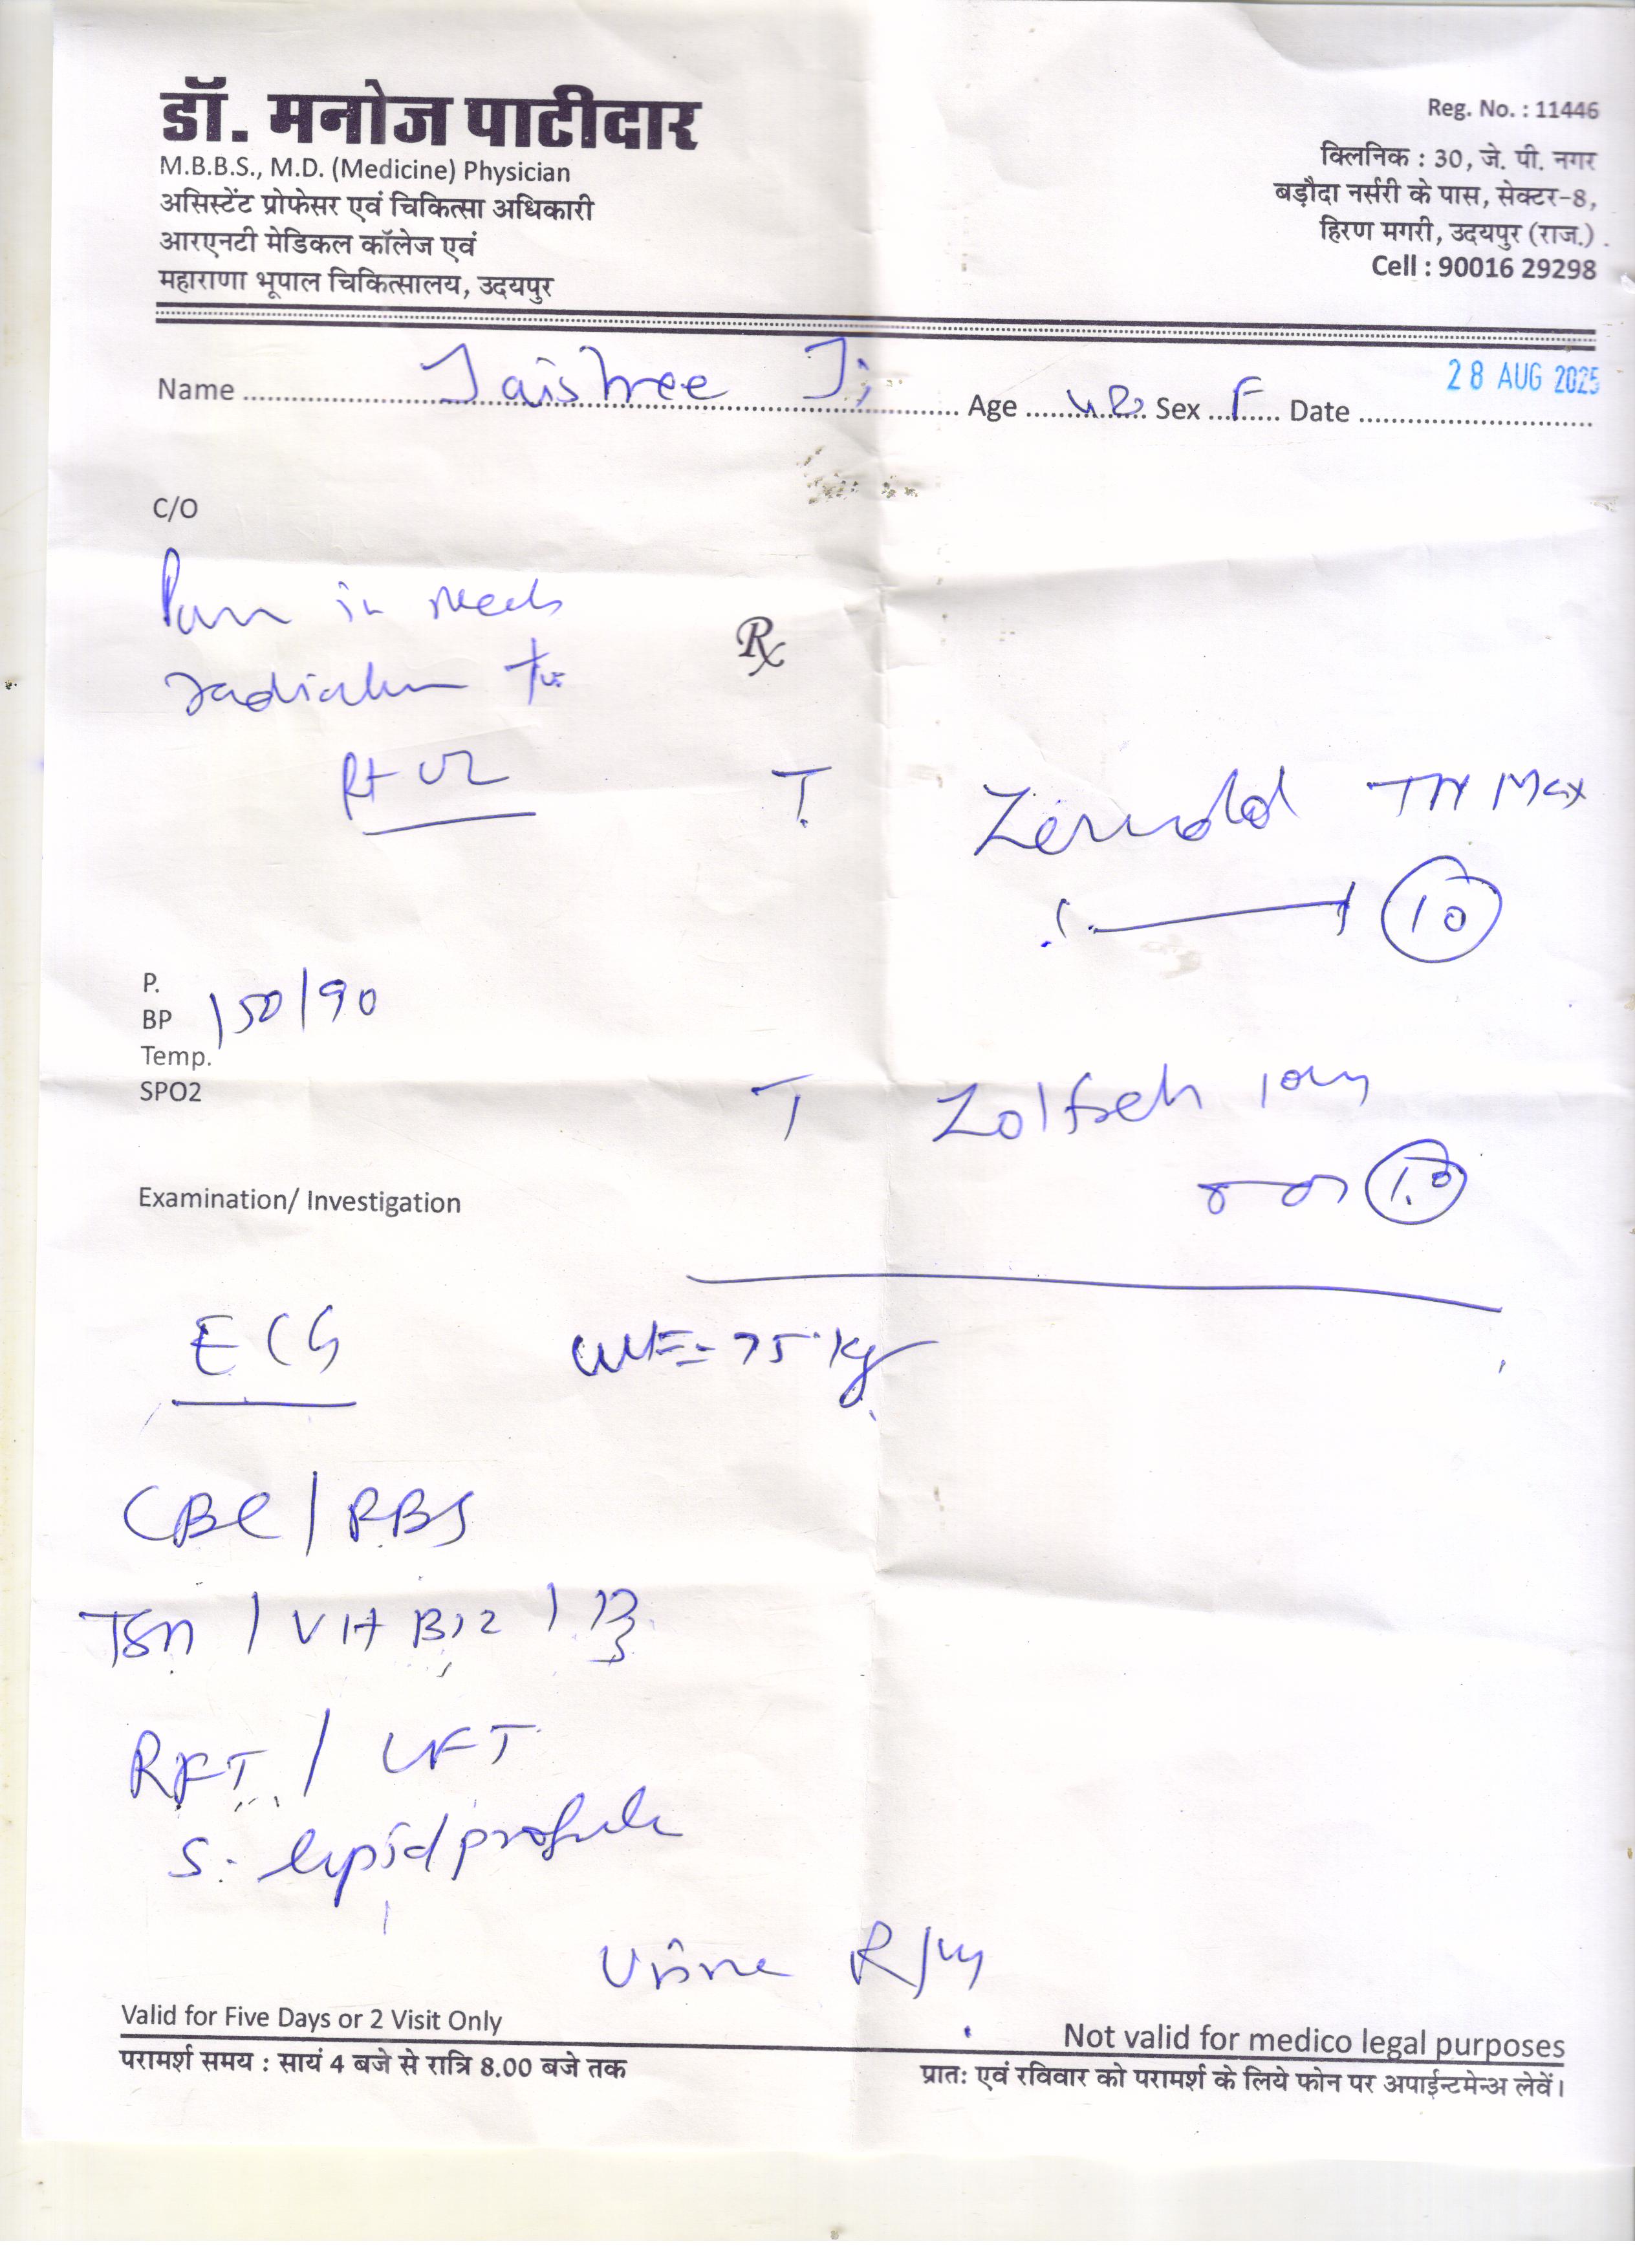 डॉ. मनोज पाटीदार
M.B.B.S., M.D. (Medicine) Physician
असिस्टेंट प्रोफेसर एवं चिकित्सा अधिकारी
आरएनटी मेडिकल कॉलेज एवं
महाराणा भूपाल चिकित्सालय, उदयपुर
Reg. No. : 11446
क्लिनिक : 30, जे. पी. नगर
बड़ौदा नर्सरी के पास, सेक्टर-8,
हिरण मगरी, उदयपुर (राज.)
Cell : 90016 29298
Name Jaishree Ji Age Sex F Date 28 AUG 2025
C/O
Pain in neck
radiation to
Rt UL
Rx
T. TH Max
10
P.
BP 150/90
Temp.
SPO2
T 10mg
10
Examination/ Investigation
ECG Wt = 75 kg
CBC / RBS
TSH / Vit B12 / D3
RFT / LFT
S. lipid profile
Urine R/M
Valid for Five Days or 2 Visit Only
Not valid for medico legal purposes
परामर्श समय : सायं 4 बजे से रात्रि 8.00 बजे तक
प्रातः एवं रविवार को परामर्श के लिये फोन पर अपाईन्टमेन्ट लेवें।